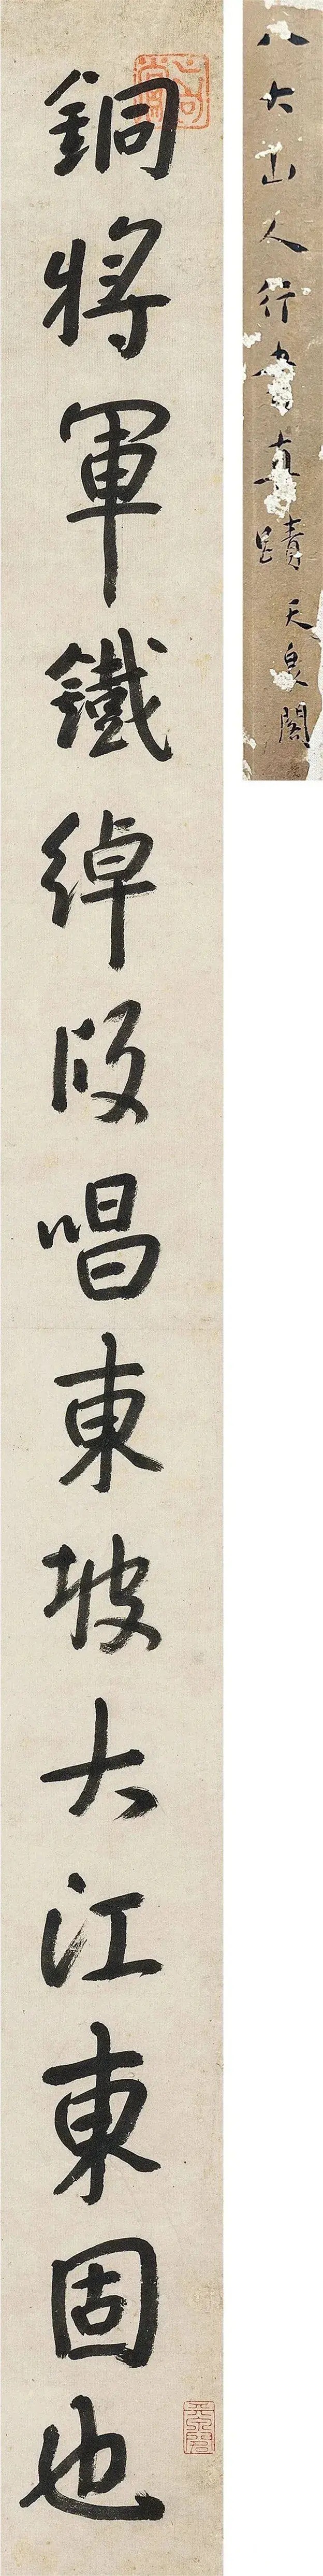 銅將軍鐵綽版唱東坡大江東固也
八大山人行書真蹟 天泉閣